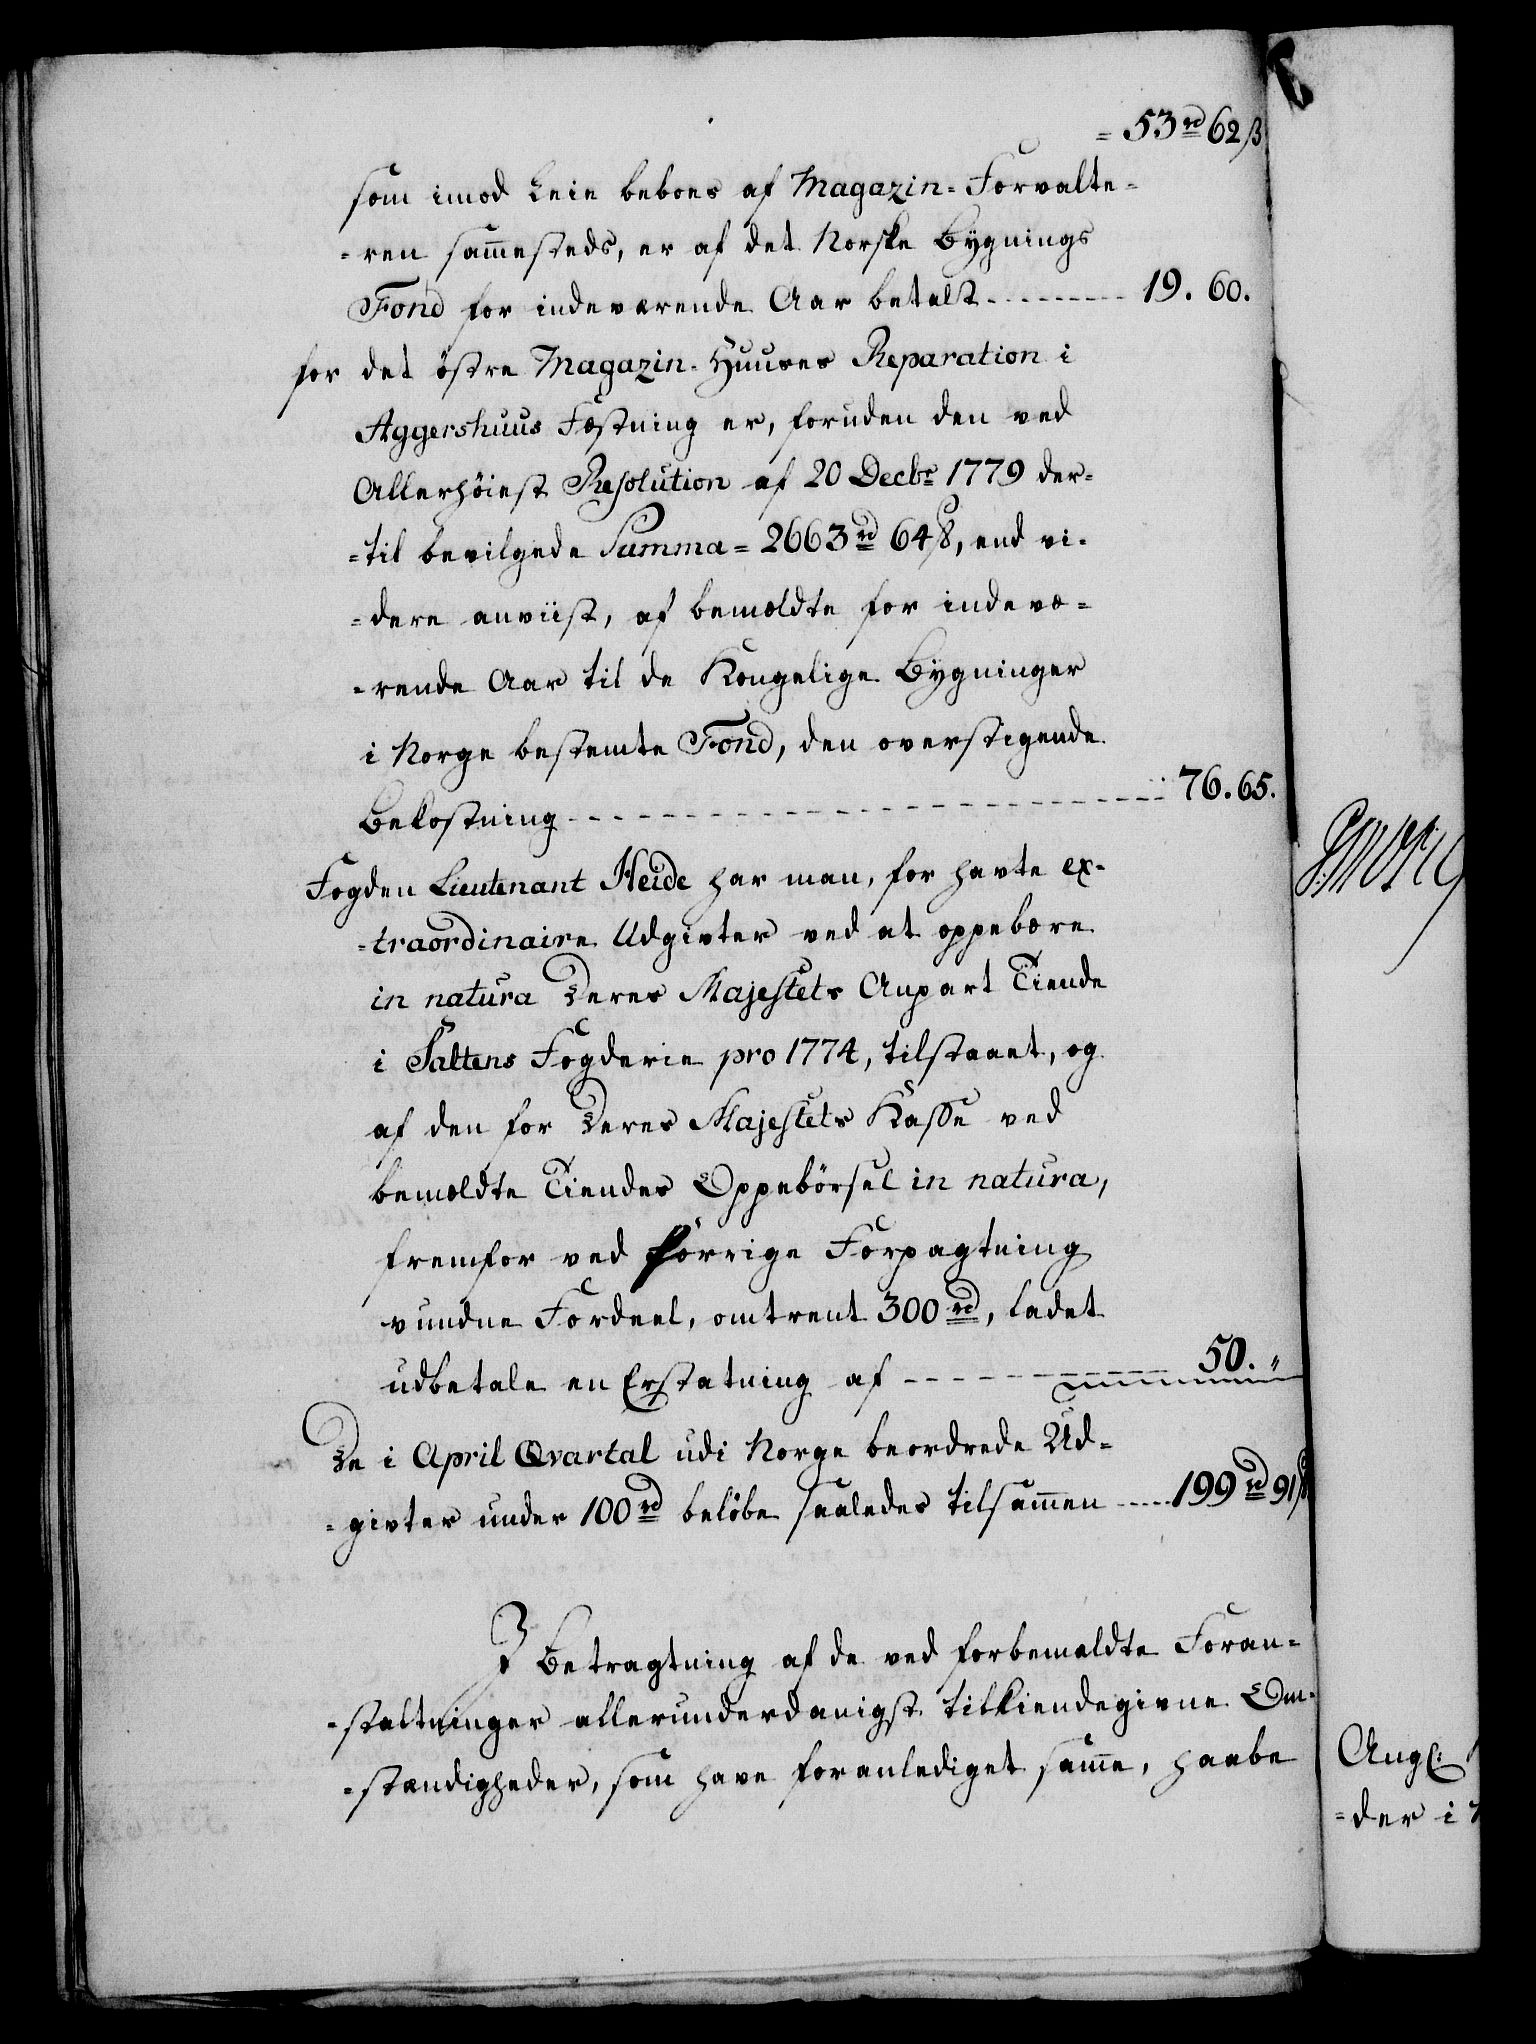 = 53 rd 62 ß
som imod Leie beboes af Magazin-Forvalte-
-ren sam̄esteds, er af det Norske Bygnings
Fond for indeværende Aar betalt --------- 19. 60.
for det östre Magazin-Huuses Reparation i
Aggershuus Fæstning er, foruden den ved
Allerhöiest Resolution af 20 Decbr 1779 der-
-til bevilgede Summa = 2663 rd 64 ß, end vi-
-dere anviist, af bemældte for indevæ-
-rende Aar til de Kongelige Bygninger
i Norge bestemte Fond, den overstigende
Bekostning --------- 76. 65.
Fogden Lieutenant Heide har man, for havte ex-
-traordinaire Udgivter ved at oppebære
in natura Deres Majestets Anpart Tiende
i Saltens Fogderie pro 1774, tilstaaet, og
af den for Deres Majestets Kasse ved
bemældte Tiendes Oppebörsel in natura,
fremfor ved förrige Forpagtning
vundne Fordeel, omtrent 300 rd, ladet
udbetale en Erstatning af --------- 50. "
De i April Qvartal udi Norge beordrede Ud-
-givter under 100 rd belöbe saaledes tilsam̄en ----- 199 rd 91 ß
I Betragtning af de ved forbemældte Foran-
-staltninger allerunderdanigst tilkiendegivne Om-
-stændigheder, som have foranlediget sam̄e, haabe
Ang
-der i